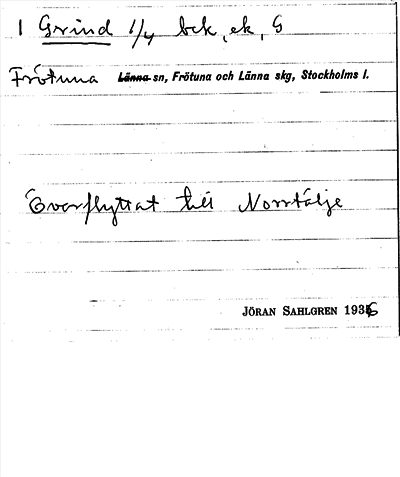 1 Grind 1/4 bck, ek, G
Frötuna Länna sn, Frötuna och Länna skg, Stockholms l.
Överflyttat till Norrtälje
JÖRAN SAHLGREN 1936